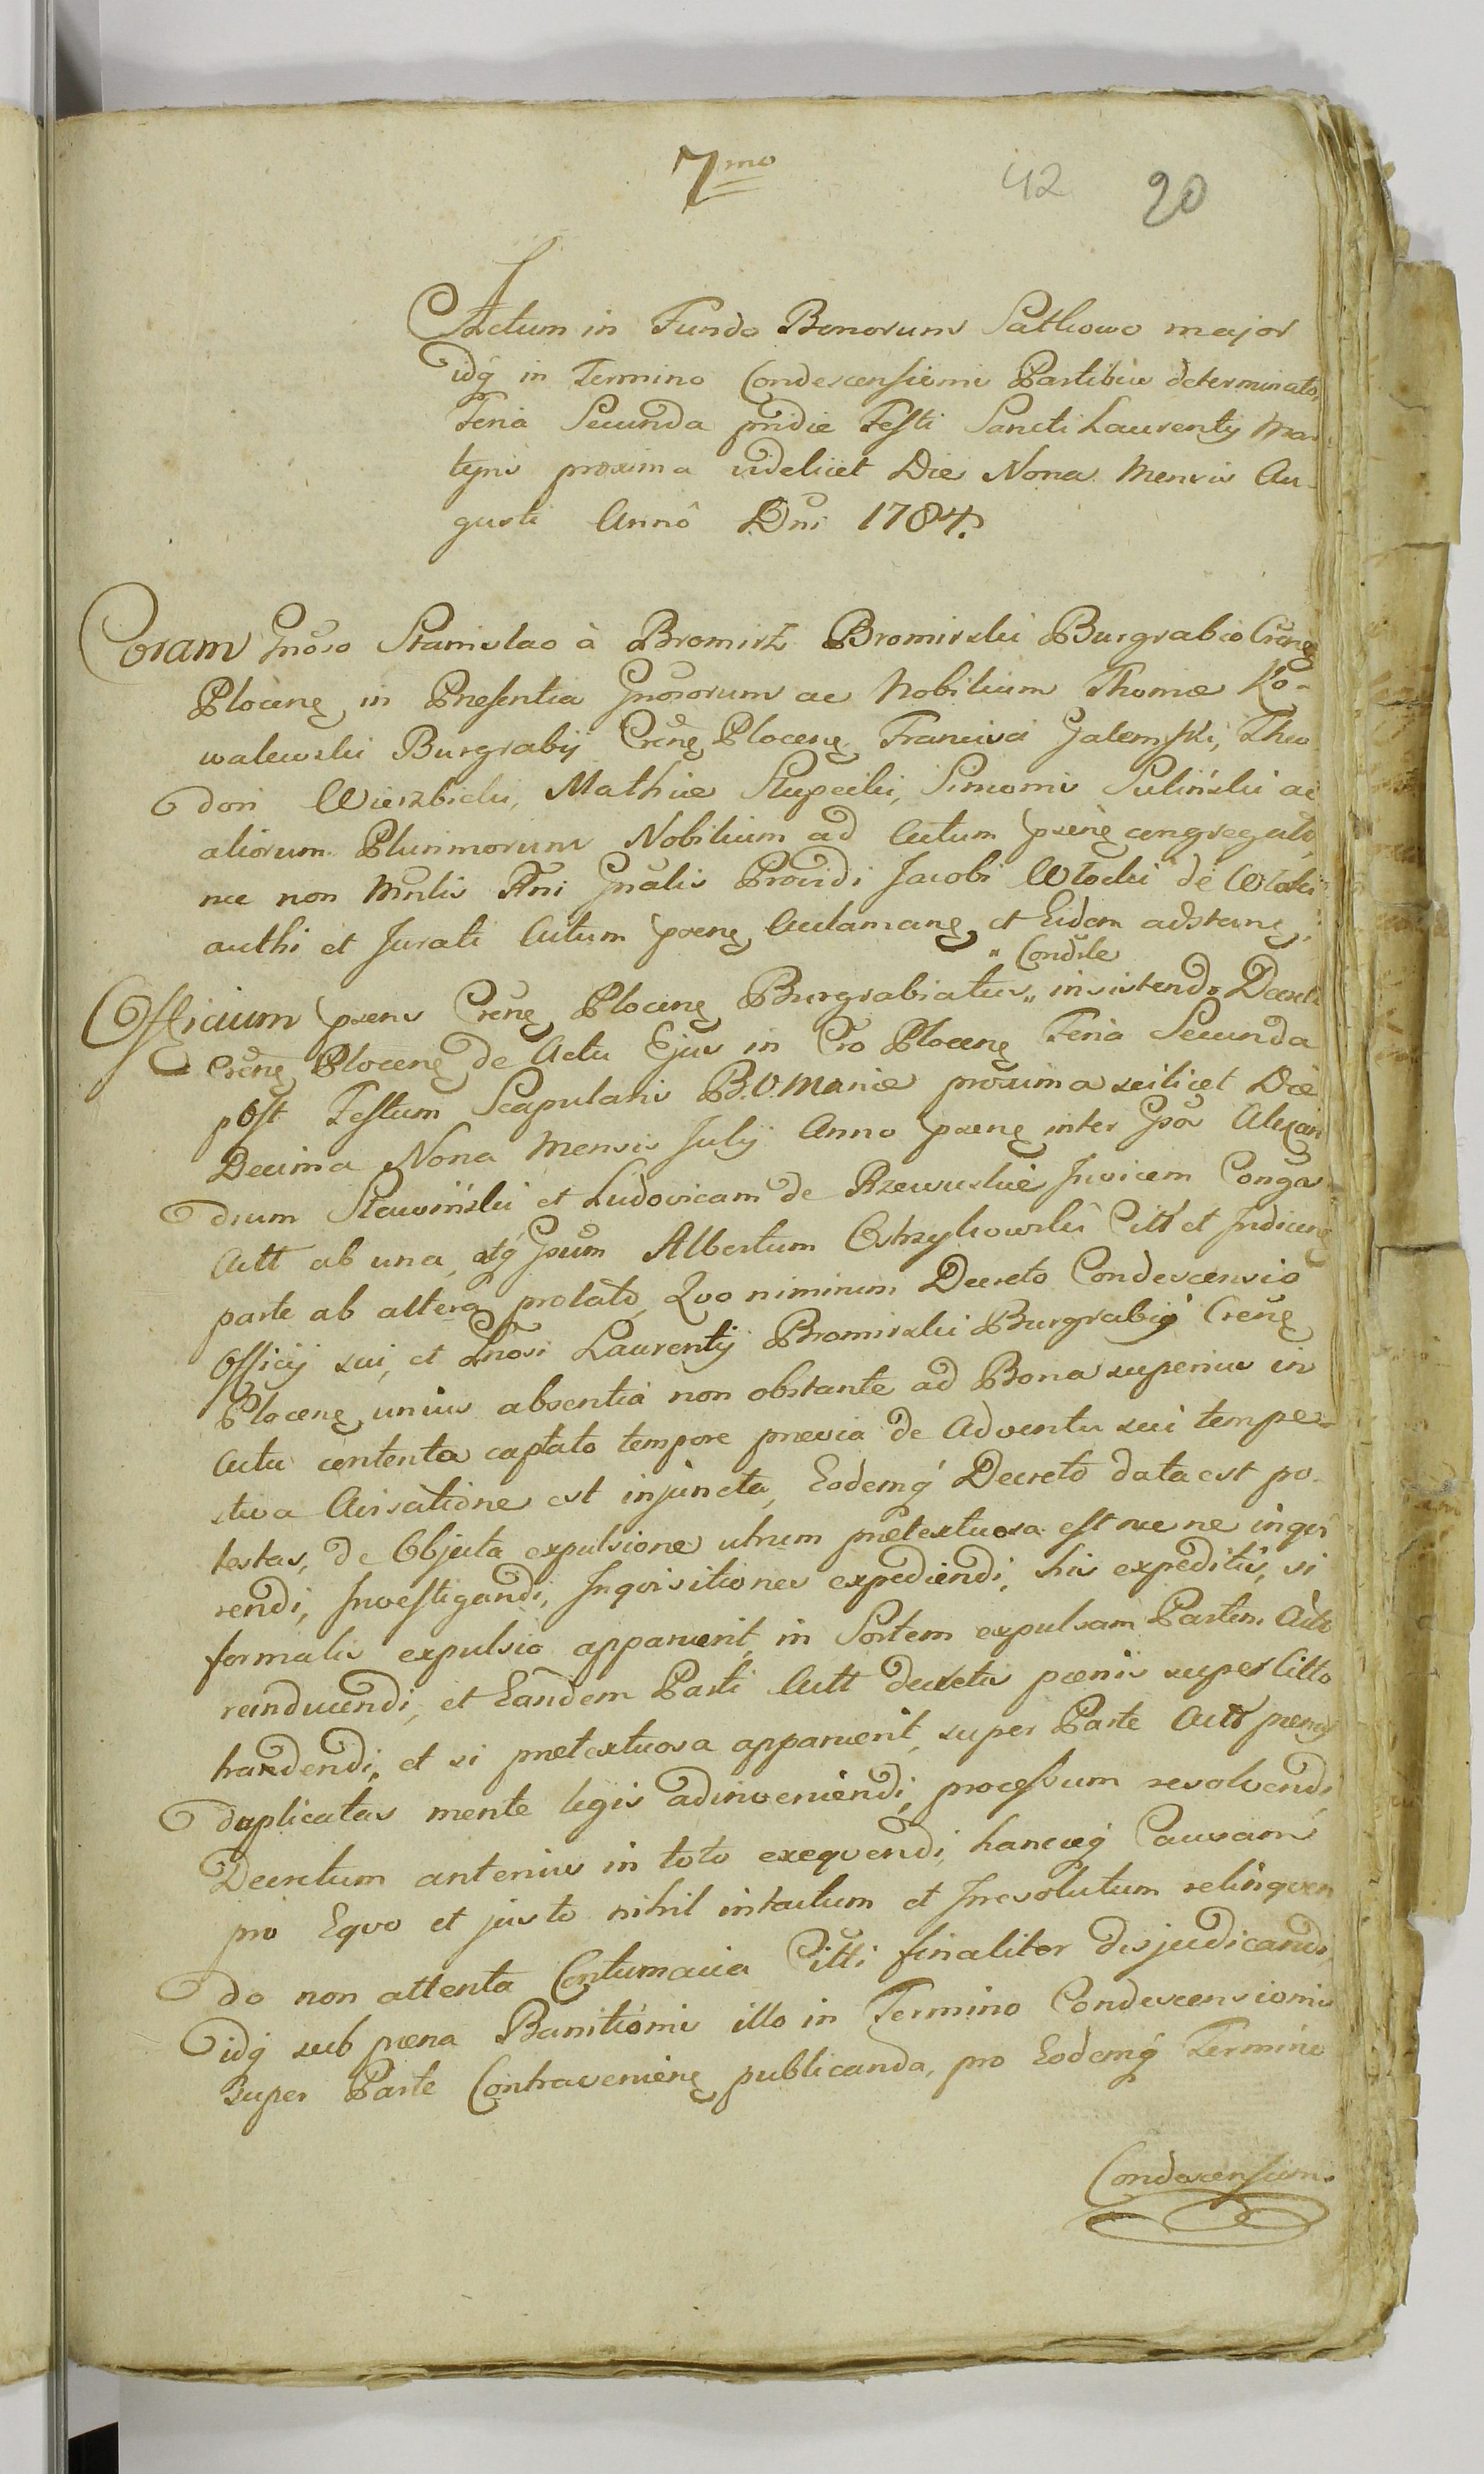 7mo
42 20
Actum in Fundo Bonorum Sathowo major
idq in Termino Condescensionis Partibus determinato,
Feria Secunda pridie Festi Sancti Laurentij Mar-
tyris proxima videlicet Die Nona Mensis Au-
gusti Annô Dni 1784.
Coram Gnoso Stanislao à Bromirz Bromirski Burgrabio Crens
Plocens in Presentia Gnosorum ac Nobilium Thomæ Ko-
walewski Burgrabij Crens Plocens Francisci Galemski, Theo
dori Wierzbicki, Mathiæ Slupecki, Simonis Suliński ac
aliorum Plurimorum Nobilium ad Actum psens congregato
nec non Mnlis Rni Gnalis Providi Jacobi Włocki de
authi et Jurati Actum psens Acclamans et Eidem adstans,
" Condsle
Officium psens Crens Plocens Burgrabiatus " insistendo Decreti
Crens Plocens de Actu Ejus in Cro Plocens Feria Secunda
post Festum Scapularis B.V. Mariæ proxima scilicet Die
Decima Nona Mensis Julij Anno psens inter Gsos Alexan
drum Slawiński et Ludovicam de Rzewuskie Invicem Congas
Actt ab una, atq Gsum Albertum Ostrzykowski Citt et Judicans
parte ab altera prolato, Quo nimirum Decreto Condescensio
Officij sui, et Gnosi Laurentij Bromirski Burgrabij Crens
Plocens unius absentiâ non obstante ad Bona superius in
Actu contenta captato tempore prævia de Adventu sui tempes-
tiva Avisatione est injuncta, Eodemq Decreto data est po-
testas, de Objecta expulsione utrum prætextuosa est nec ne inqvi
rendi, Investigandi, Inqvisitiones expediendi, his expeditis, si
formalis expulsio apparuerit, in Sortem expulsam Partem Actt
reinducendi, et Eandem Parti Actt decretis pœnis super Citto
tradendi, et si prætextuosa apparuerit, super Parte Actt pœnas
duplicatas mente legis adinveniendi, processum resolvendi,
Decretum anterius in toto exeqvendi, hancq Causam
pro Eqvo et justo nihil intactum et Irresolutum relinqven
do non attenta Contumacia Citti finaliter disjudicandi,
idq sub pœna Banitionis illo in Termino Condescensionis
super Parte Contraveniens publicanda, pro Eodemq Termino
Condescensionis